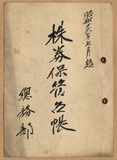 昭和十六年七月起
株券保管台帳
總務部